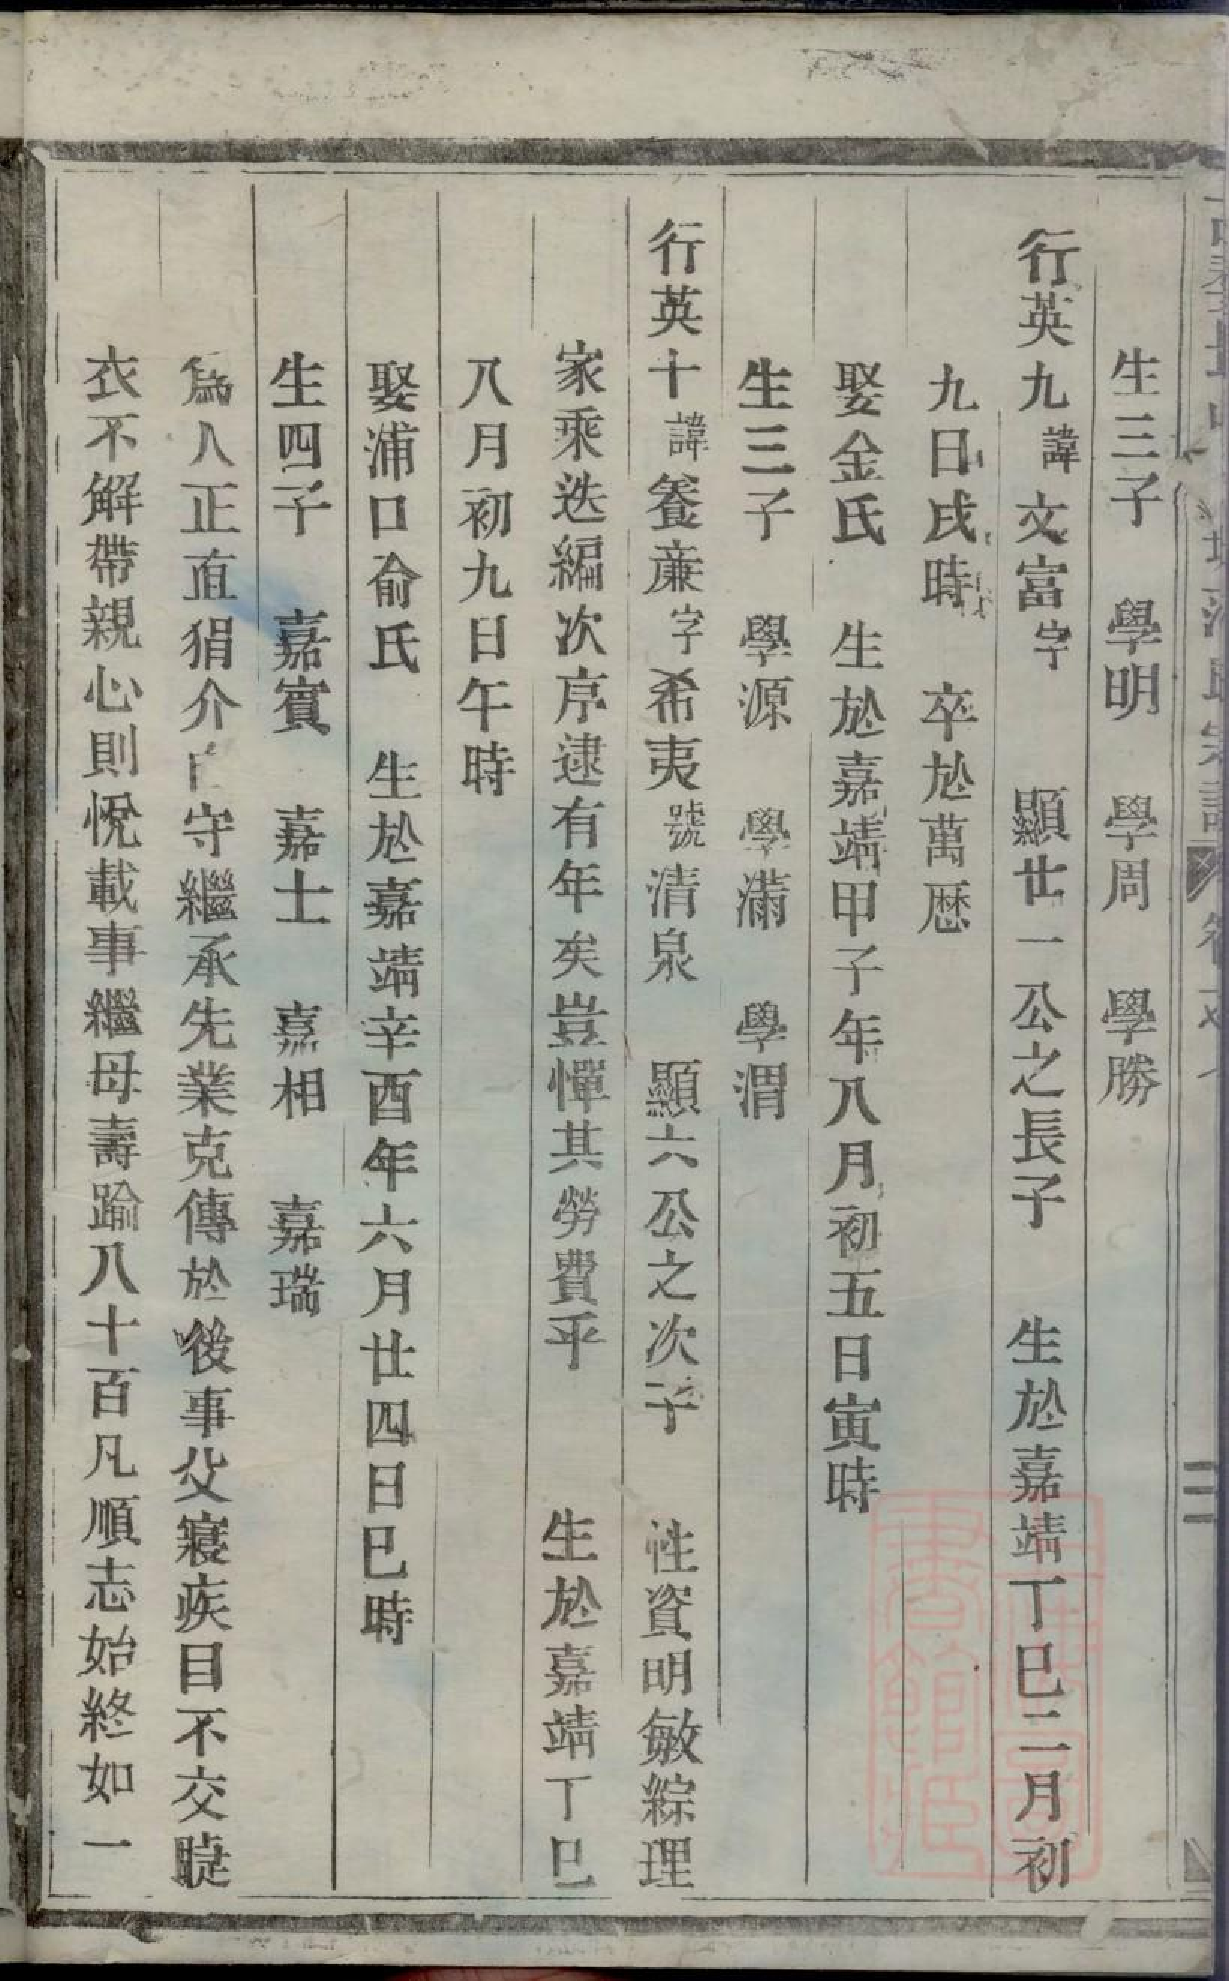 生三子 學明 學周 學勝
行英九諱文富字 顯廿一公之長子 生於嘉靖丁巳二月初
九日戌時 卒於萬歷
娶金氏 生於嘉靖甲子年八月初五日寅時
生三子 學源 學滿 學渭
行英十諱養廉字希夷號清泉 顯六公之次子 性資明敏綜理
家乘迭編次序逮有年矣豈憚其勞費乎 生於嘉靖丁巳
八月初九日午時
娶浦口俞氏 生於嘉靖辛酉年六月廿四日巳時
生四子 嘉賓 嘉士 嘉相 嘉瑞
為人正直狷介守繼承先業克傳於後事父寢疾目不交睫
衣不解帶親心則悅載事繼母壽踰八十百凡順志始終如一